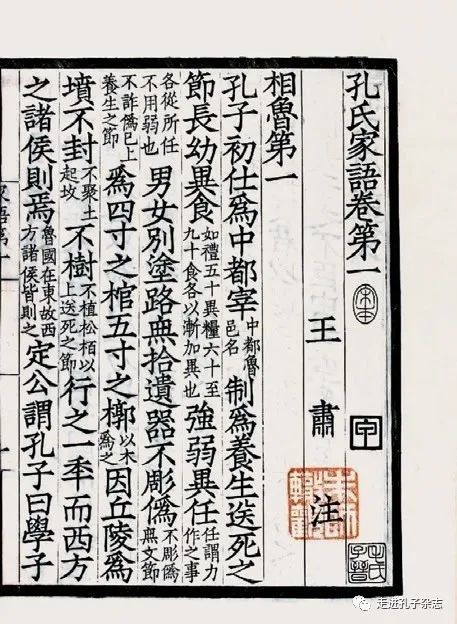 孔氏家語卷第一
宋本
王肅注
甲
相魯第一
孔子初仕爲中都宰中都魯邑名制爲養生送死之
節長幼異食如禮五十異糧六十至九十食各以漸加異也強弱異任任謂力作之事
各從所任不用弱也男女別塗路無拾遺器不彫僞不彫僞無文節
不詐僞已上養生之節爲四寸之棺五寸之槨以木爲之因丘陵爲
墳不封不聚土起墳不樹不植松柏以上送死之節行之一秊而西方
之諸侯則焉魯國在東故西方諸侯皆則之定公謂孔子曰學子
朱師轍觀
毛氏子晉
走进孔子杂志